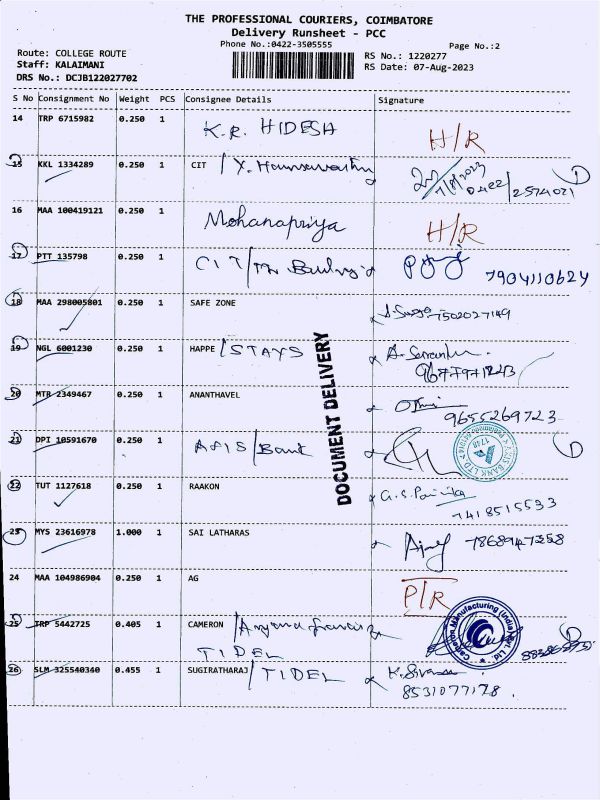 THE PROFESSIONAL COURIERS, COIMBATORE
Delivery Runsheet - PCC
Phone No.:0422-3505555
Page No.:2
Route: COLLEGE ROUTE
Staff: KALAIMANI
DRS No.: DCJB122027702
RS No.: 1220277
RS Date: 07-Aug-2023
S No Consignment No Weight PCS Consignee Details Signature
14 TRP 6715982 0.250 1 K.R. HIDESH H/R
15 KKL 1334289 0.250 1 CIT
7/8/2023
0422/2574021
16 MAA 100419121 0.250 1 Mohanapriya H/R
17 PTT 135798 0.250 1 CIT/
7904110624
18 MAA 298005801 0.250 1 SAFE ZONE
7502027149
19 NGL 6001230 0.250 1 HAPPE /STAYS
20 MTR 2349467 0.250 1 ANANTHAVEL
9655269723
DOCUMENT DELIVERY
21 DPI 10591670 0.250 1 AXIS/Bank
22 TUT 1127618 0.250 1 RAAKON
7418515533
23 MYS 23616978 1.000 1 SAI LATHARAS
24 MAA 104986904 0.250 1 AG P/R
25 TRP 5442725 0.405 1 CAMERON /
TIDEL
Manufacturing (India) Pvt. Ltd
26 SLM 325540340 0.455 1 SUGIRATHARAJ /TIDEL K.
8531077178.